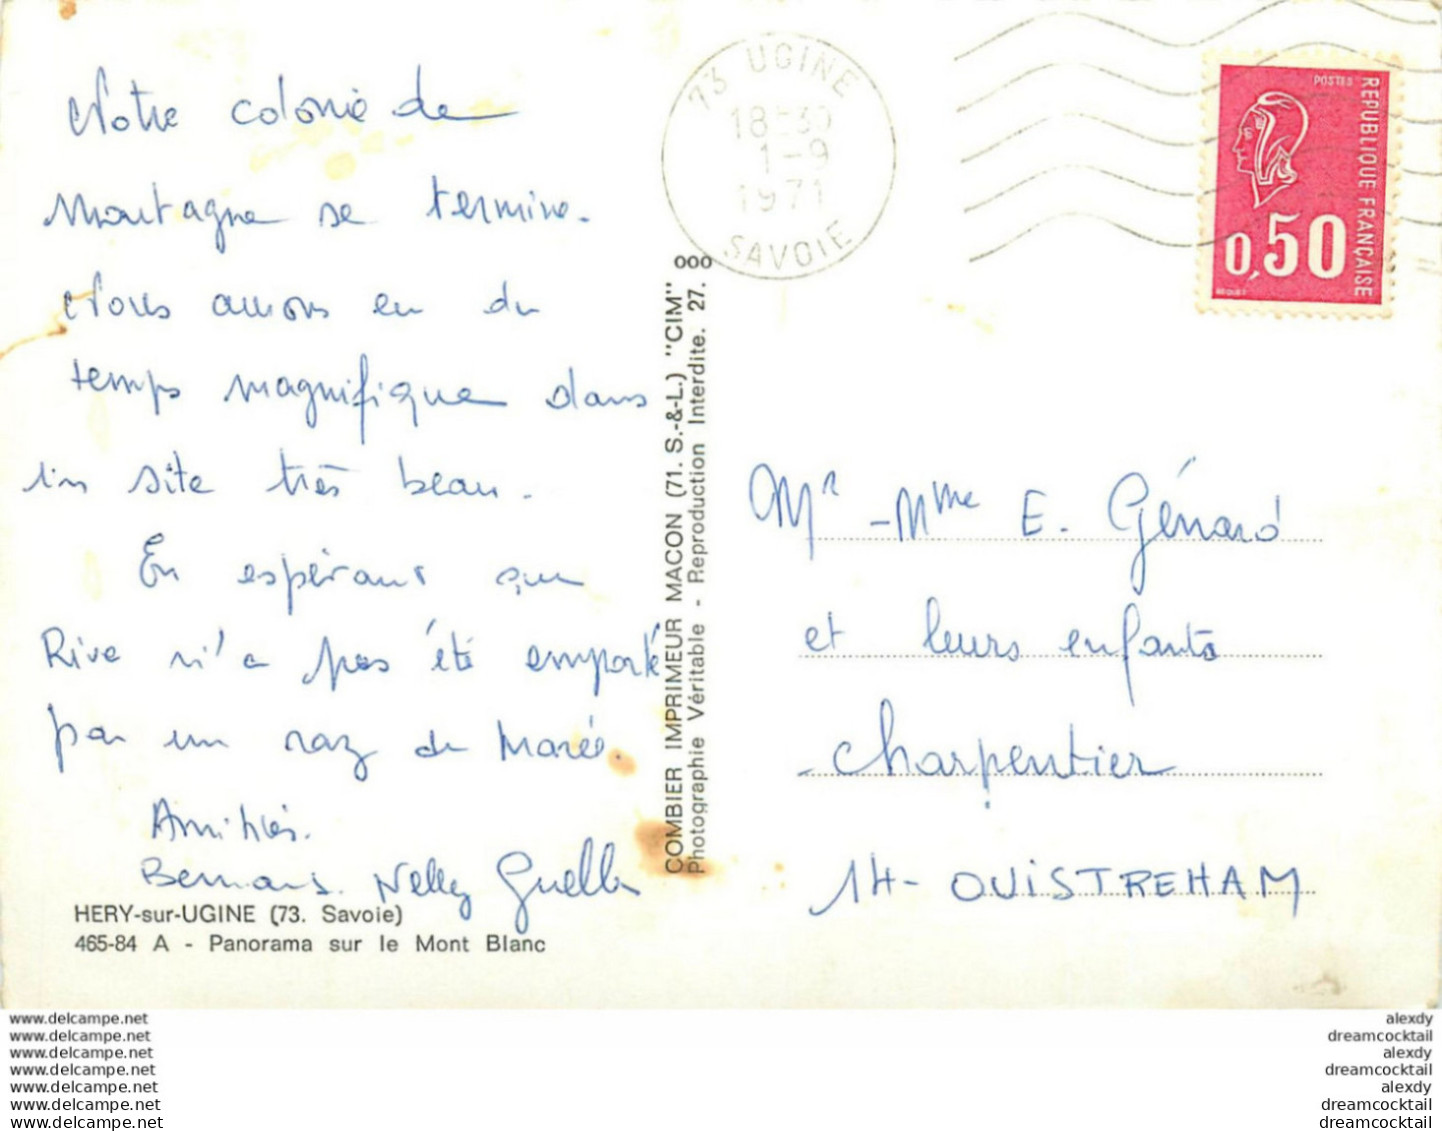 Notre colonie de
montagne se termine.
Nous avons eu du
temps magnifique dans
un site très beau.
En espérant que
Riva n'a pas été emporté
par un raz de marée.
Amitiés.
Bernard. Nelly
HERY-sur-UGINE (73. Savoie)
465-84 A - Panorama sur le Mont Blanc
COMBIER IMPRIMEUR MACON (71. S.-&-L.) "CIM"
Photographie Véritable - Reproduction Interdite. 27.
000
73 UGINE
18H30
1-9
1971
SAVOIE
POSTES
REPUBLIQUE FRANÇAISE
0,50
BEQUET
Mr - Mme E. Génard
et leurs enfants
charpentier
14 - OUISTREHAM
www.delcampe.net
www.delcampe.net
www.delcampe.net
www.delcampe.net
www.delcampe.net
www.delcampe.net
www.delcampe.net
alexdy
dreamcocktail
alexdy
dreamcocktail
alexdy
dreamcocktail
dreamcocktail